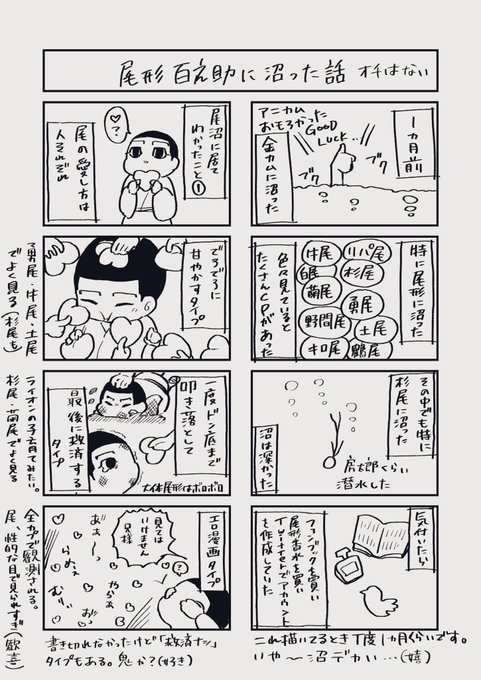 尾形百之助に沼った話 オチはない
1ヵ月前
アニカム
おもろかった
GOOD
LUCK…
ブク
ブク
金カムに沼った
特に尾形に沼った
リパ尾
杉尾
勇尾
土尾
鶴尾
牛尾
白尾
菊尾
野間尾
キロ尾
色々見ていると
たくさんCPがあった
その中でも特に
杉尾に沼った
沼は深かった
房太郎くらい
潜水した
気付いたら
ファンブックを買い
尾形香水を買い
Twitterでアカウント
を作成していた
これ描いてるとき丁度1ヵ月くらいです。
いや〜沼デカい…(嬉)
尾沼に居て
わかったこと①
?
尾の愛し方は
人それぞれ
でろでろに
甘やかすタイプ
男尾・牛尾・土尾
でよく見る(杉尾も)
一度ドン底まで
叩き落として
最後に救済する
タイプ
大体尾形はボロボロ
ライオンの子育てみたい。
杉尾・菊尾でよく見る
エロ漫画タイプ
見ては
いけません
兄様
?
あぁ〜っ
らめぇ
やらぁ
むりぃ
全カプで観測される。
尾、性的な目で見られすぎ(歓喜)
書き切れなかったけど「救済ナシ」
タイプもある。鬼か?(好き)